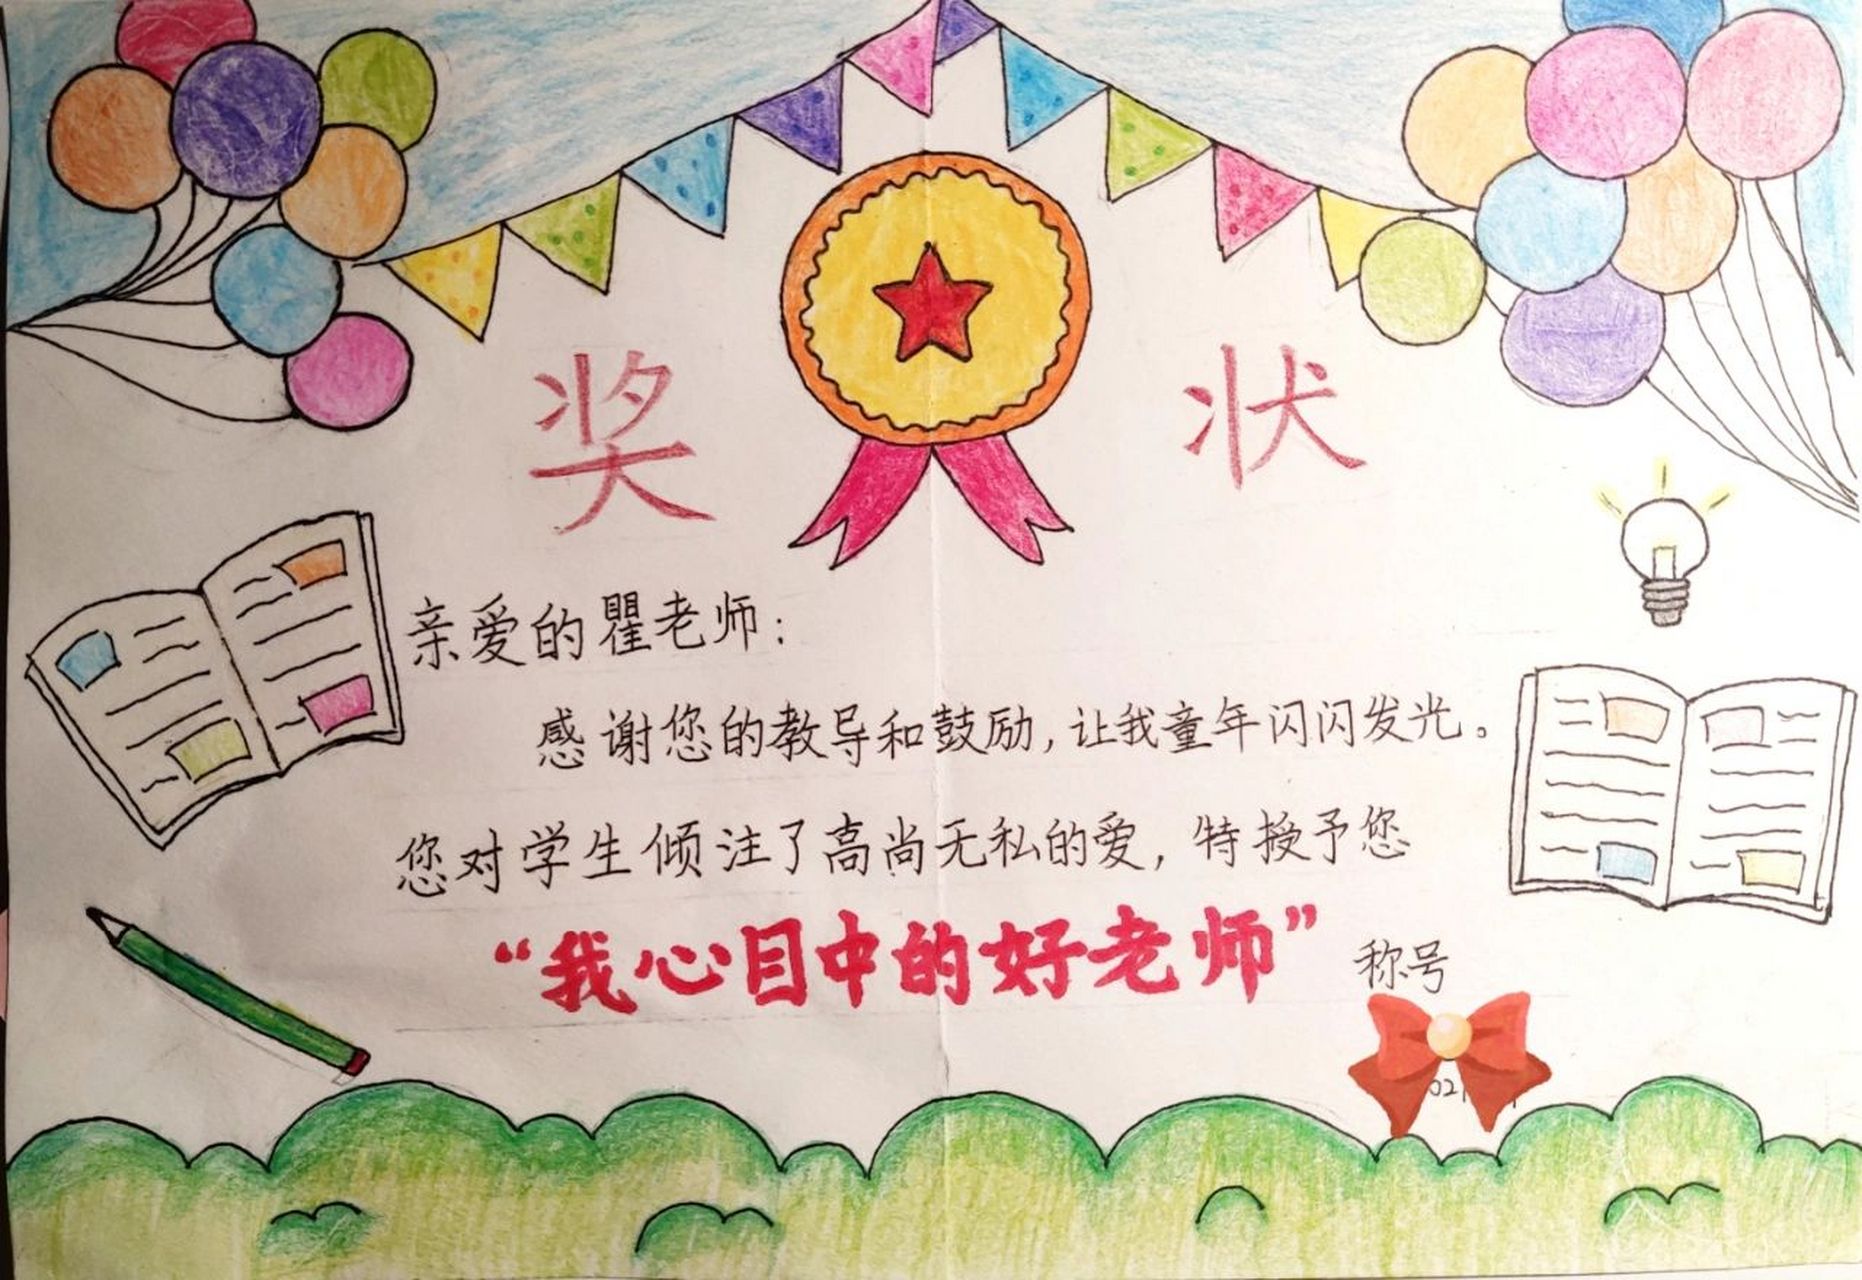 奖状
亲爱的瞿老师：
感谢您的教导和鼓励，让我童年闪闪发光。
您对学生倾注了高尚无私的爱，特授予您
“我心目中的好老师” 称号